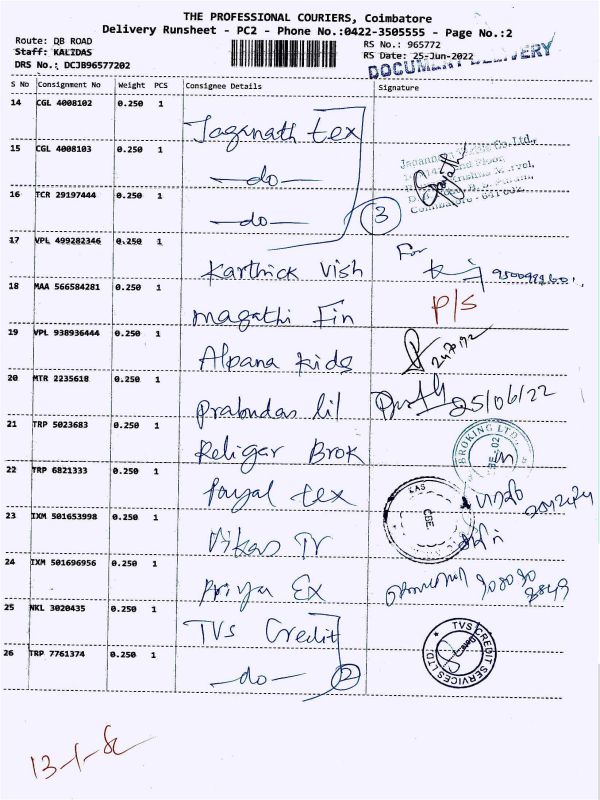 THE PROFESSIONAL COURIERS, Coimbatore
Delivery Runsheet - PC2 - Phone No.:0422-3505555 - Page No.:2
Route: QB ROAD
Staff: KALIDAS
DRS No.: DCJB96577202
RS No.: 965772
RS Date: 25-Jun-2022
DOCUMENT DELIVERY
S No Consignment No Weight PCS Consignee Details Signature
14 CGL 4008102 0.250 1 Jaganath tex
15 CGL 4008103 0.250 1 —do—
16 TCR 29197444 0.250 1 —do— 3
17 VPL 499282346 0.250 1 Karthick Vish For
18 MAA 566584281 0.250 1 magathi Fin P/S
19 VPL 938936444 0.250 1 Alpana kids
20 MTR 2235618 0.250 1 prabudas lil 25/06/22
21 TRP 5023683 0.250 1 Religar Brok BROKING LTD
22 TRP 6821333 0.250 1 Payal tex
23 IXM 501653998 0.250 1 Vikas Tr CBE
24 IXM 501696956 0.250 1 Priya Ex
25 NKL 3020435 0.250 1 TVS Credit TVS CREDIT SERVICES LTD
26 TRP 7761374 0.250 1 —do— 2